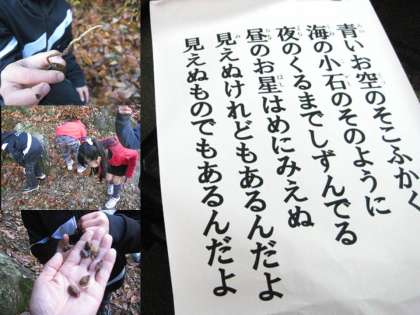 青いお空のそこふかく
海の小石のそのように
夜のくるまでしずんでる
昼のお星はめにみえぬ
見えぬけれどもあるんだよ
見えぬものでもあるんだよ